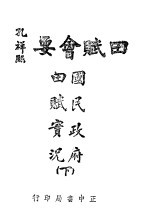 田賦會要
孔祥熙
國民政府
田賦實況
(下)
正中書局印行